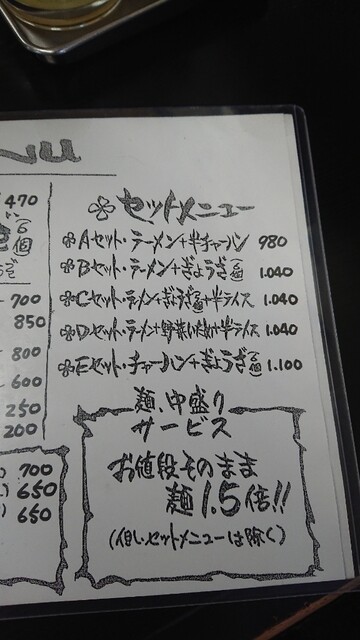 NU
470
個
700
850
800
600
250
200
700
650
650
セットメニュー
Aセット・ラーメン+半チャーハン 980
Bセット・ラーメン+ぎょうざ 1.040
Cセット・ラーメン+ぎょうざ+半ライス 1.040
Dセット・ラーメン+野菜いため+半ライス 1.040
Eセット・チャーハン+ぎょうざ 1.100
麺、中盛り
サービス
お値段そのまま
麺1.5倍!!
(但しセットメニューは除く)